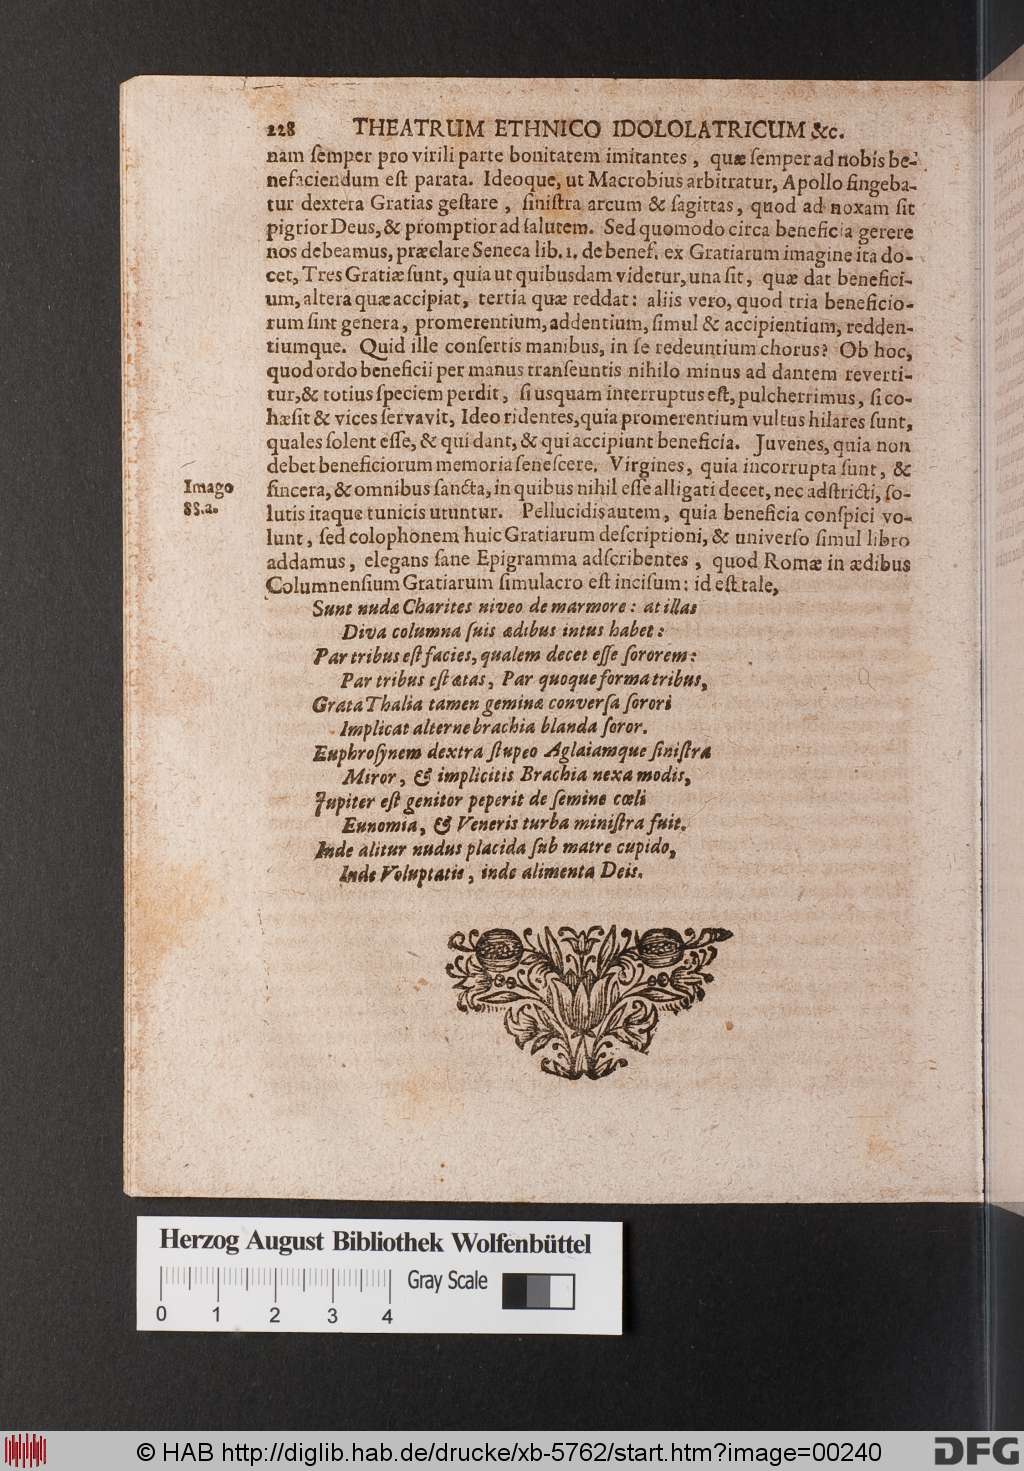 228 THEATRUM ETHNICO IDOLOLATRICUM &c.
nam ſemper pro virili parte bonitatem imitantes, quæ ſemper ad nobis be-
nefaciendum eſt parata. Ideoque, ut Macrobius arbitratur, Apollo fingeba-
tur dextera Gratias geſtare, ſiniſtra arcum & ſagittas, quod ad noxam ſit
pigrior Deus, & promptior ad ſalutem. Sed quomodo circa beneficia gerere
nos debeamus, præclare Seneca lib. 1. de benef. ex Gratiarum imagine ita do-
cet, Tres Gratiæ ſunt, quia ut quibusdam videtur, una ſit, quæ dat benefici-
um, altera quæ accipiat, tertia quæ reddat: aliis vero, quod tria beneficio-
rum ſint genera, promerentium, addentium, ſimul & accipientium, redden-
tiumque. Quid ille conſertis manibus, in ſe redeuntium chorus? Ob hoc,
quod ordo beneficii per manus tranſeuntis nihilo minus ad dantem reverti-
tur, & totius ſpeciem perdit, ſi usquam interruptus eſt, pulcherrimus, ſi co-
hæſit & vices ſervavit, Ideo ridentes, quia promerentium vultus hilares ſunt,
quales ſolent eſſe, & qui dant, & qui accipiunt beneficia. Juvenes, quia non
debet beneficiorum memoria ſeneſcere. Virgines, quia incorrupta ſunt, &
Imago
§§.a.
ſincera, & omnibus ſancta, in quibus nihil eſſe alligati decet, nec adſtricti, ſo-
lutis itaque tunicis utuntur. Pellucidis autem, quia beneficia conſpici vo-
lunt, ſed colophonem huic Gratiarum deſcriptioni, & univerſo ſimul libro
addamus, elegans ſane Epigramma adſcribentes, quod Romæ in ædibus
Columnenſium Gratiarum ſimulacro eſt inciſum: id eſt tale,
Sunt nudæ Charites niveo de marmore: at illas
Diva columna ſuis ædibus intus habet:
Par tribus eſt facies, qualem decet eſſe ſororem:
Par tribus eſt ætas, Par quoque forma tribus,
Grata Thalia tamen geminæ converſa ſorori
Implicat alterne brachia blanda ſoror.
Euphroſynem dextra ſtupeo Aglaiamque ſiniſtra
Miror, & implicitis Brachia nexa modis,
Jupiter eſt genitor peperit de ſemine cœli
Eunomia, & Veneris turba miniſtra fuit.
Inde alitur nudus placida ſub matre cupido,
Inde Voluptatis, inde alimenta Deis.
Herzog August Bibliothek Wolfenbüttel
Gray Scale
0 1 2 3 4
© HAB http://diglib.hab.de/drucke/xb-5762/start.htm?image=00240
DFG